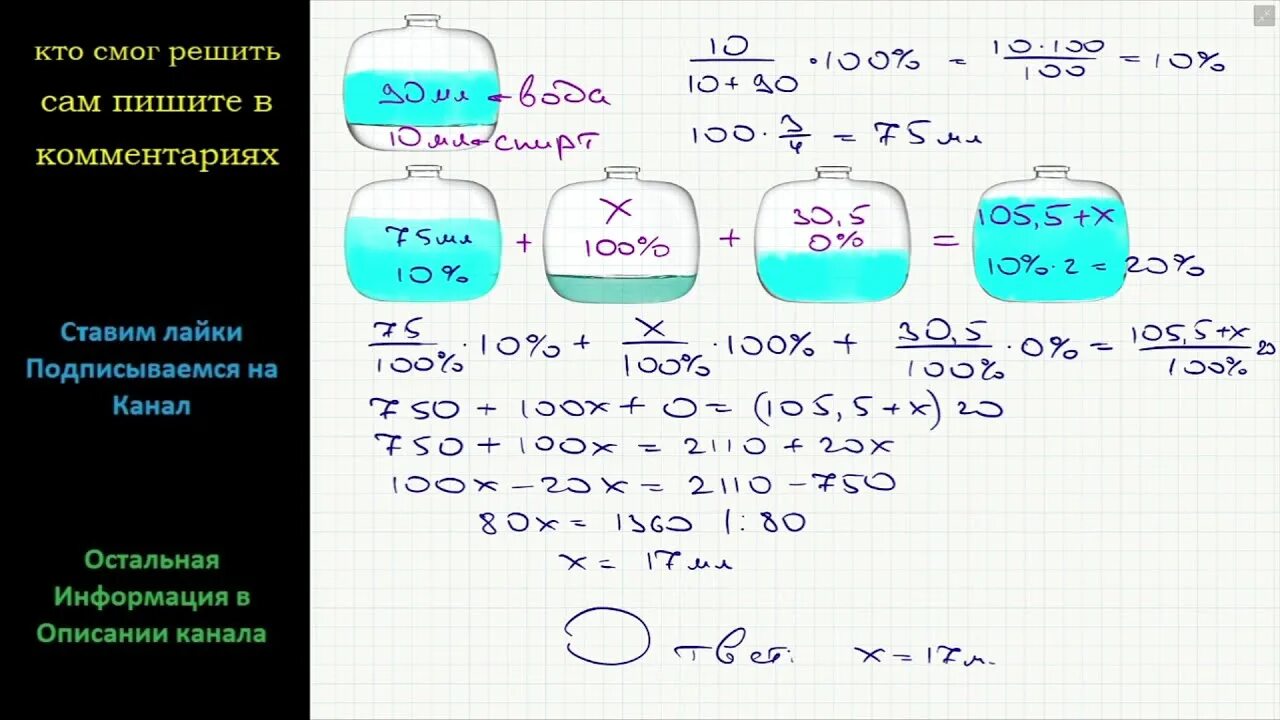 кто смог решить
сам пишите в
комментариях
Ставим лайки
Подписываемся на
Канал
Остальная
Информация в
Описании канала
90мл ← вода
10мл ← спирт
10/(10+90) · 100% = (10·100)/100 = 10%
100 · 3/4 = 75мл
75мл 10% + x 100% + 30,5 0% = 105,5+x 10%·2 = 20%
75/100% · 10% + x/100% · 100% + 30,5/100% · 0% = (105,5+x)/100% 20
750 + 100x + 0 = (105,5+x) 20
750 + 100x = 2110 + 20x
100x - 20x = 2110 - 750
80x = 1360 |: 80
x = 17мл
Ответ: x = 17м.